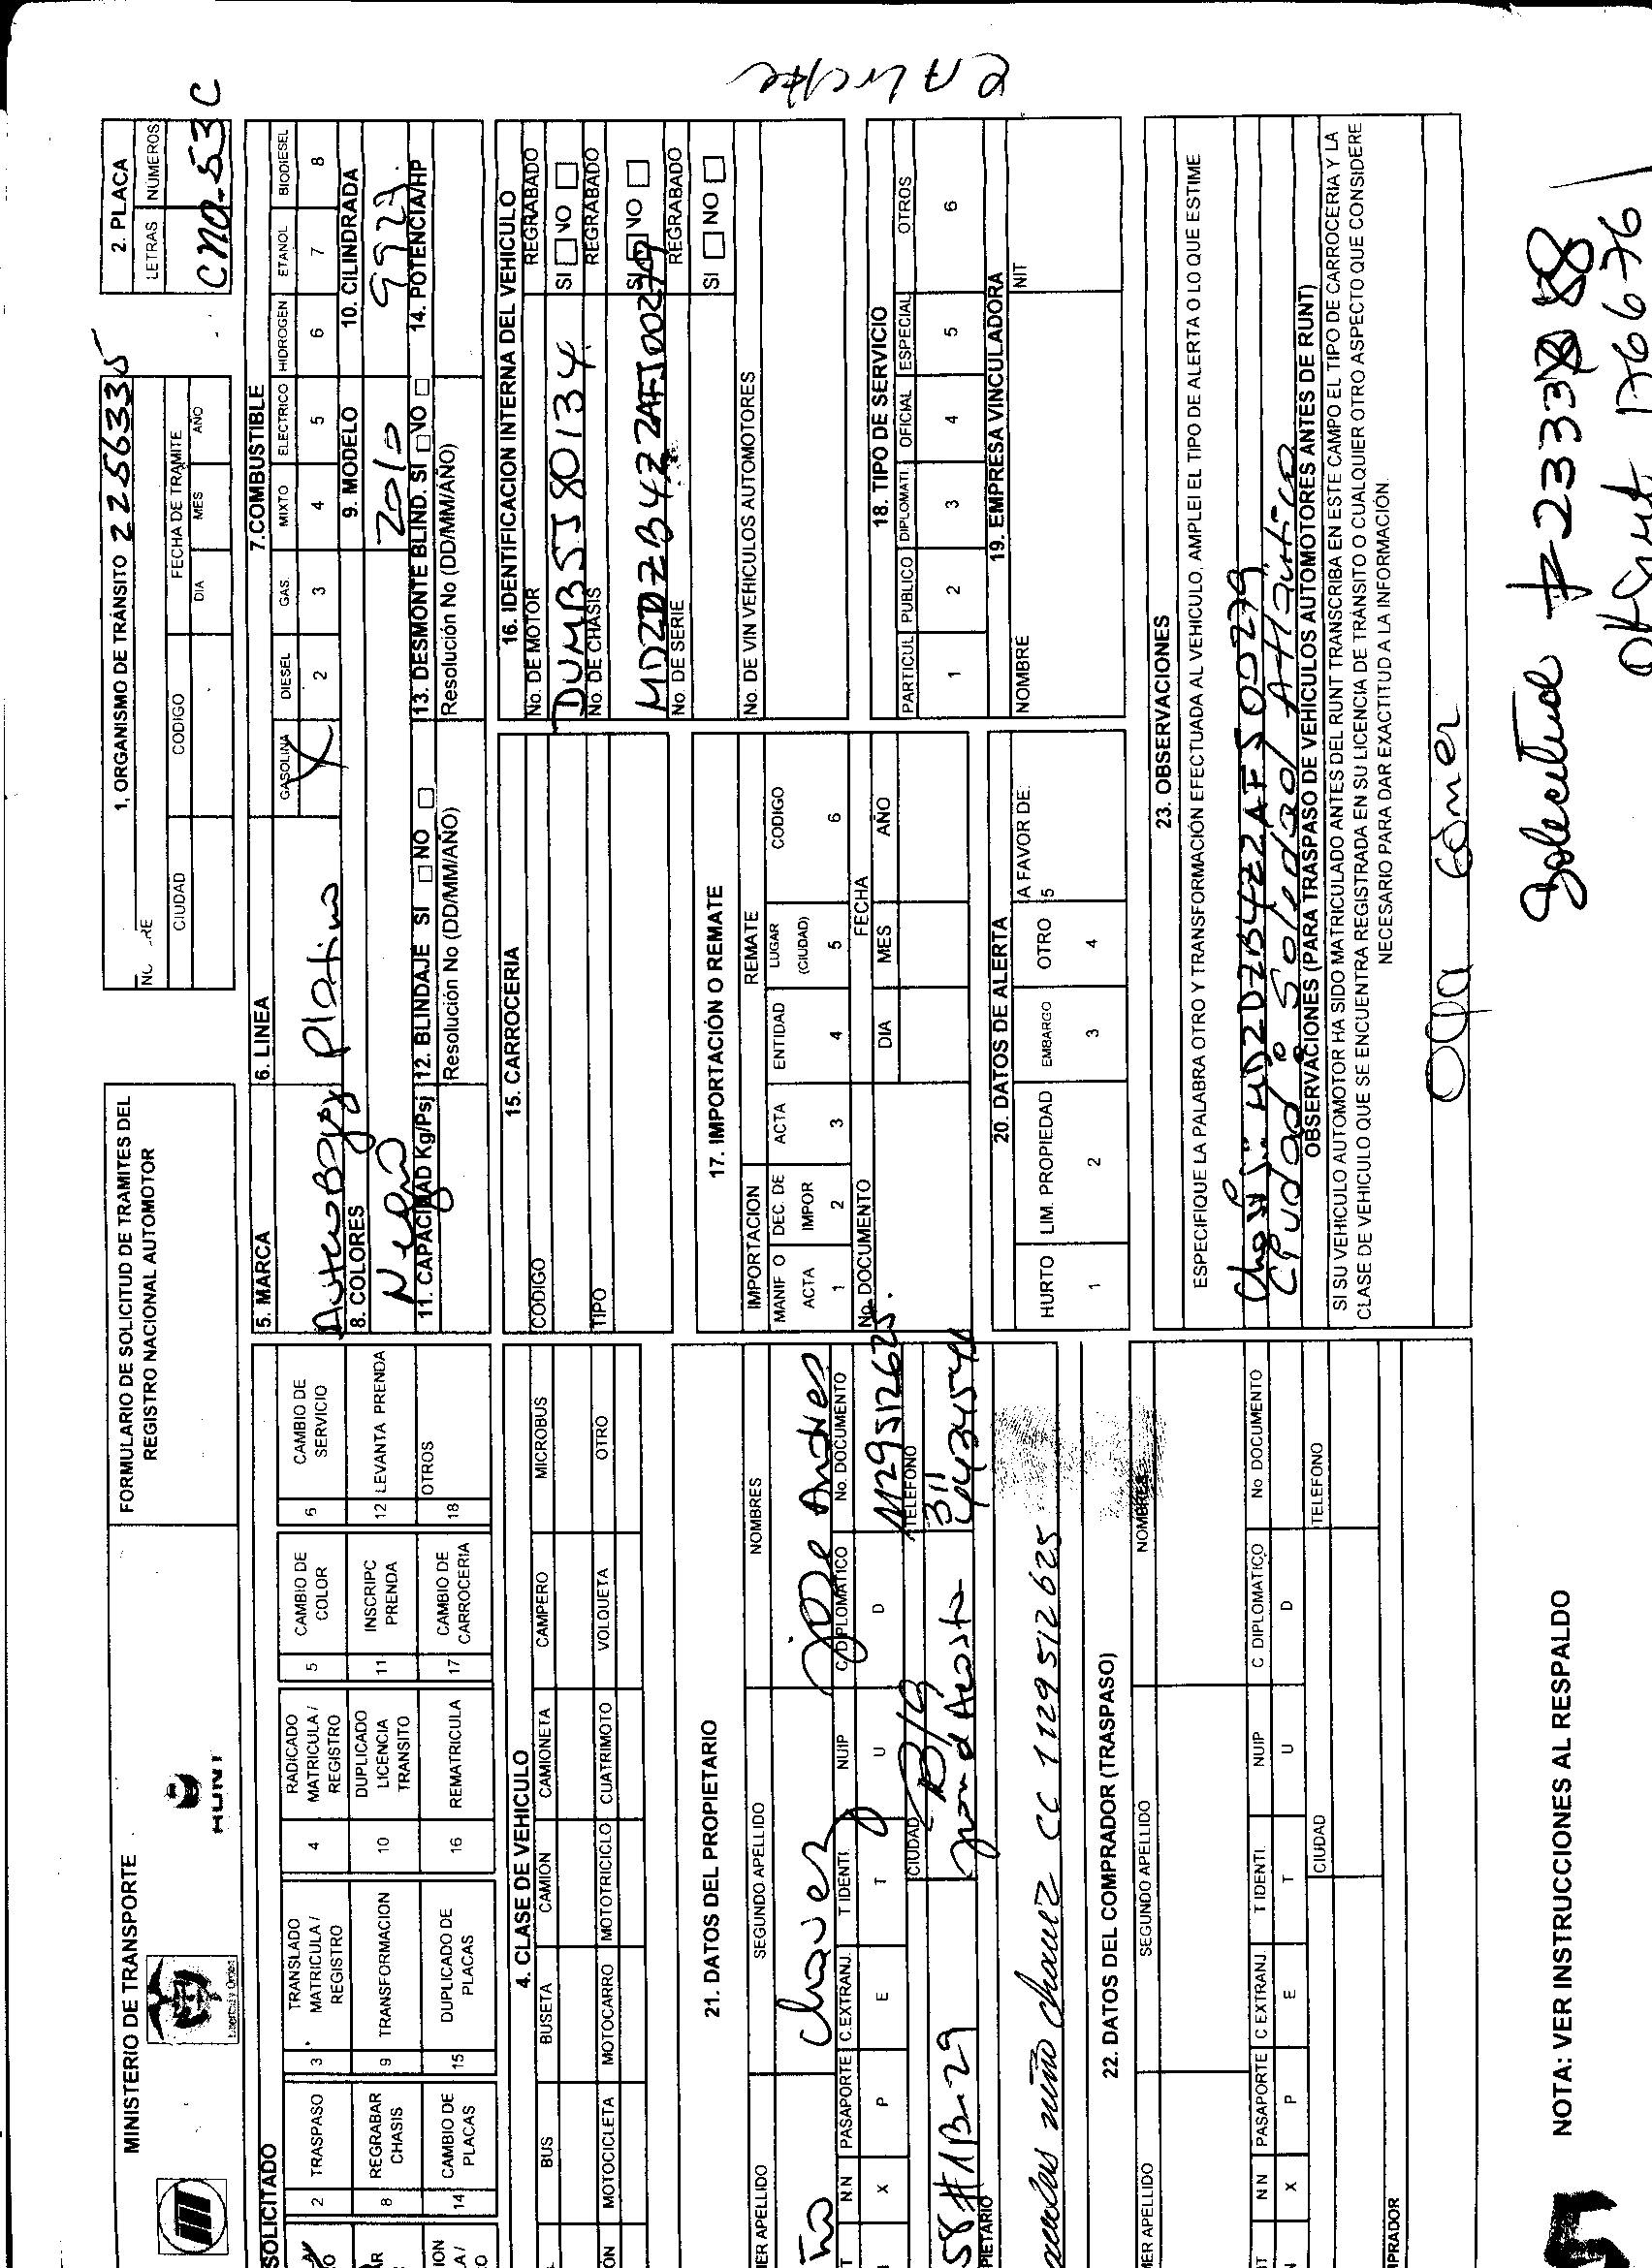 MINISTERIO DE TRANSPORTE
Libertad y Orden
FORMULARIO DE SOLICITUD DE TRAMITES DEL
REGISTRO NACIONAL AUTOMOTOR
1. ORGANISMO DE TRÁNSITO 2256335
CIUDAD CODIGO FECHA DE TRAMITE
DIA MES AÑO
2. PLACA
LETRAS NUMEROS
CNO-53C
SOLICITADO
2 TRASPASO
3 TRANSLADO MATRICULA / REGISTRO
4 RADICADO MATRICULA / REGISTRO
5 CAMBIO DE COLOR
6 CAMBIO DE SERVICIO
8 REGRABAR CHASIS
9 TRANSFORMACION
10 DUPLICADO LICENCIA TRANSITO
11 INSCRIPC PRENDA
12 LEVANTA PRENDA
14 CAMBIO DE PLACAS
15 DUPLICADO DE PLACAS
16 REMATRICULA
17 CAMBIO DE CARROCERIA
18 OTROS
4. CLASE DE VEHICULO
BUS BUSETA CAMIÓN CAMIONETA CAMPERO MICROBUS
MOTOCICLETA MOTOCARRO MOTOTRICICLO CUATRIMOTO VOLQUETA OTRO
5. MARCA 6. LINEA
Platino
7.COMBUSTIBLE
GASOLINA DIESEL GAS. MIXTO ELECTRICO HIDROGEN ETANOL BIODIESEL
X 2 3 4 5 6 7 8
8. COLORES 9. MODELO 10. CILINDRADA
Negro 2010 9927
11. CAPACIDAD Kg/Psj 12. BLINDAJE SI NO 13. DESMONTE BLIND. SI NO 14. POTENCIA/HP
Resolución No (DD/MM/AÑO) Resolución No (DD/MM/AÑO)
15. CARROCERIA
CODIGO
TIPO
16. IDENTIFICACION INTERNA DEL VEHICULO
No. DE MOTOR REGRABADO
DUMBSJ80134 SI NO
No. DE CHASIS REGRABADO
MD2DZB4ZZAFJ00279 SI NO
No. DE SERIE REGRABADO
SI NO
No. DE VIN VEHICULOS AUTOMOTORES
17. IMPORTACIÓN O REMATE
IMPORTACION REMATE
MANIF O ACTA DEC. DE IMPOR ACTA ENTIDAD LUGAR (CIUDAD) CODIGO
1 2 3 4 5 6
No. DOCUMENTO FECHA
DIA MES AÑO
18. TIPO DE SERVICIO
PARTICUL PUBLICO DIPLOMATI. OFICIAL ESPECIAL OTROS
1 2 3 4 5 6
19. EMPRESA VINCULADORA
NOMBRE NIT
20. DATOS DE ALERTA
HURTO LIM. PROPIEDAD EMBARGO OTRO A FAVOR DE:
1 2 3 4 5
21. DATOS DEL PROPIETARIO
SEGUNDO APELLIDO NOMBRES
Chavez Jose Andres
N.N PASAPORTE C.EXTRANJ. T IDENTI. NUIP C/DIPLOMATICO No. DOCUMENTO
X P E T U D 1129512625.
CIUDAD TELEFONO
58#1B-29 B/Q
niño chavez CC 1129512625
22. DATOS DEL COMPRADOR (TRASPASO)
SEGUNDO APELLIDO NOMBRES
N N PASAPORTE C EXTRANJ. T IDENTI. NUIP C DIPLOMATICO No DOCUMENTO
X P E T U D
CIUDAD TELEFONO
23. OBSERVACIONES
ESPECIFIQUE LA PALABRA OTRO Y TRANSFORMACIÓN EFECTUADA AL VEHICULO, AMPLEI EL TIPO DE ALERTA O LO QUE ESTIME
Chasis: MD2DZB4ZZAFJ00279
Ciudad: Soledad Atlántico
OBSERVACIONES (PARA TRASPASO DE VEHICULOS AUTOMOTORES ANTES DE RUNT)
SI SU VEHICULO AUTOMOTOR HA SIDO MATRICULADO ANTES DEL RUNT TRANSCRIBA EN ESTE CAMPO EL TIPO DE CARROCERIA Y LA
CLASE DE VEHICULO QUE SE ENCUENTRA REGISTRADA EN SU LICENCIA DE TRÁNSITO O CUALQUIER OTRO ASPECTO QUE CONSIDERE
NECESARIO PARA DAR EXACTITUD A LA INFORMACIÓN.
NOTA: VER INSTRUCCIONES AL RESPALDO